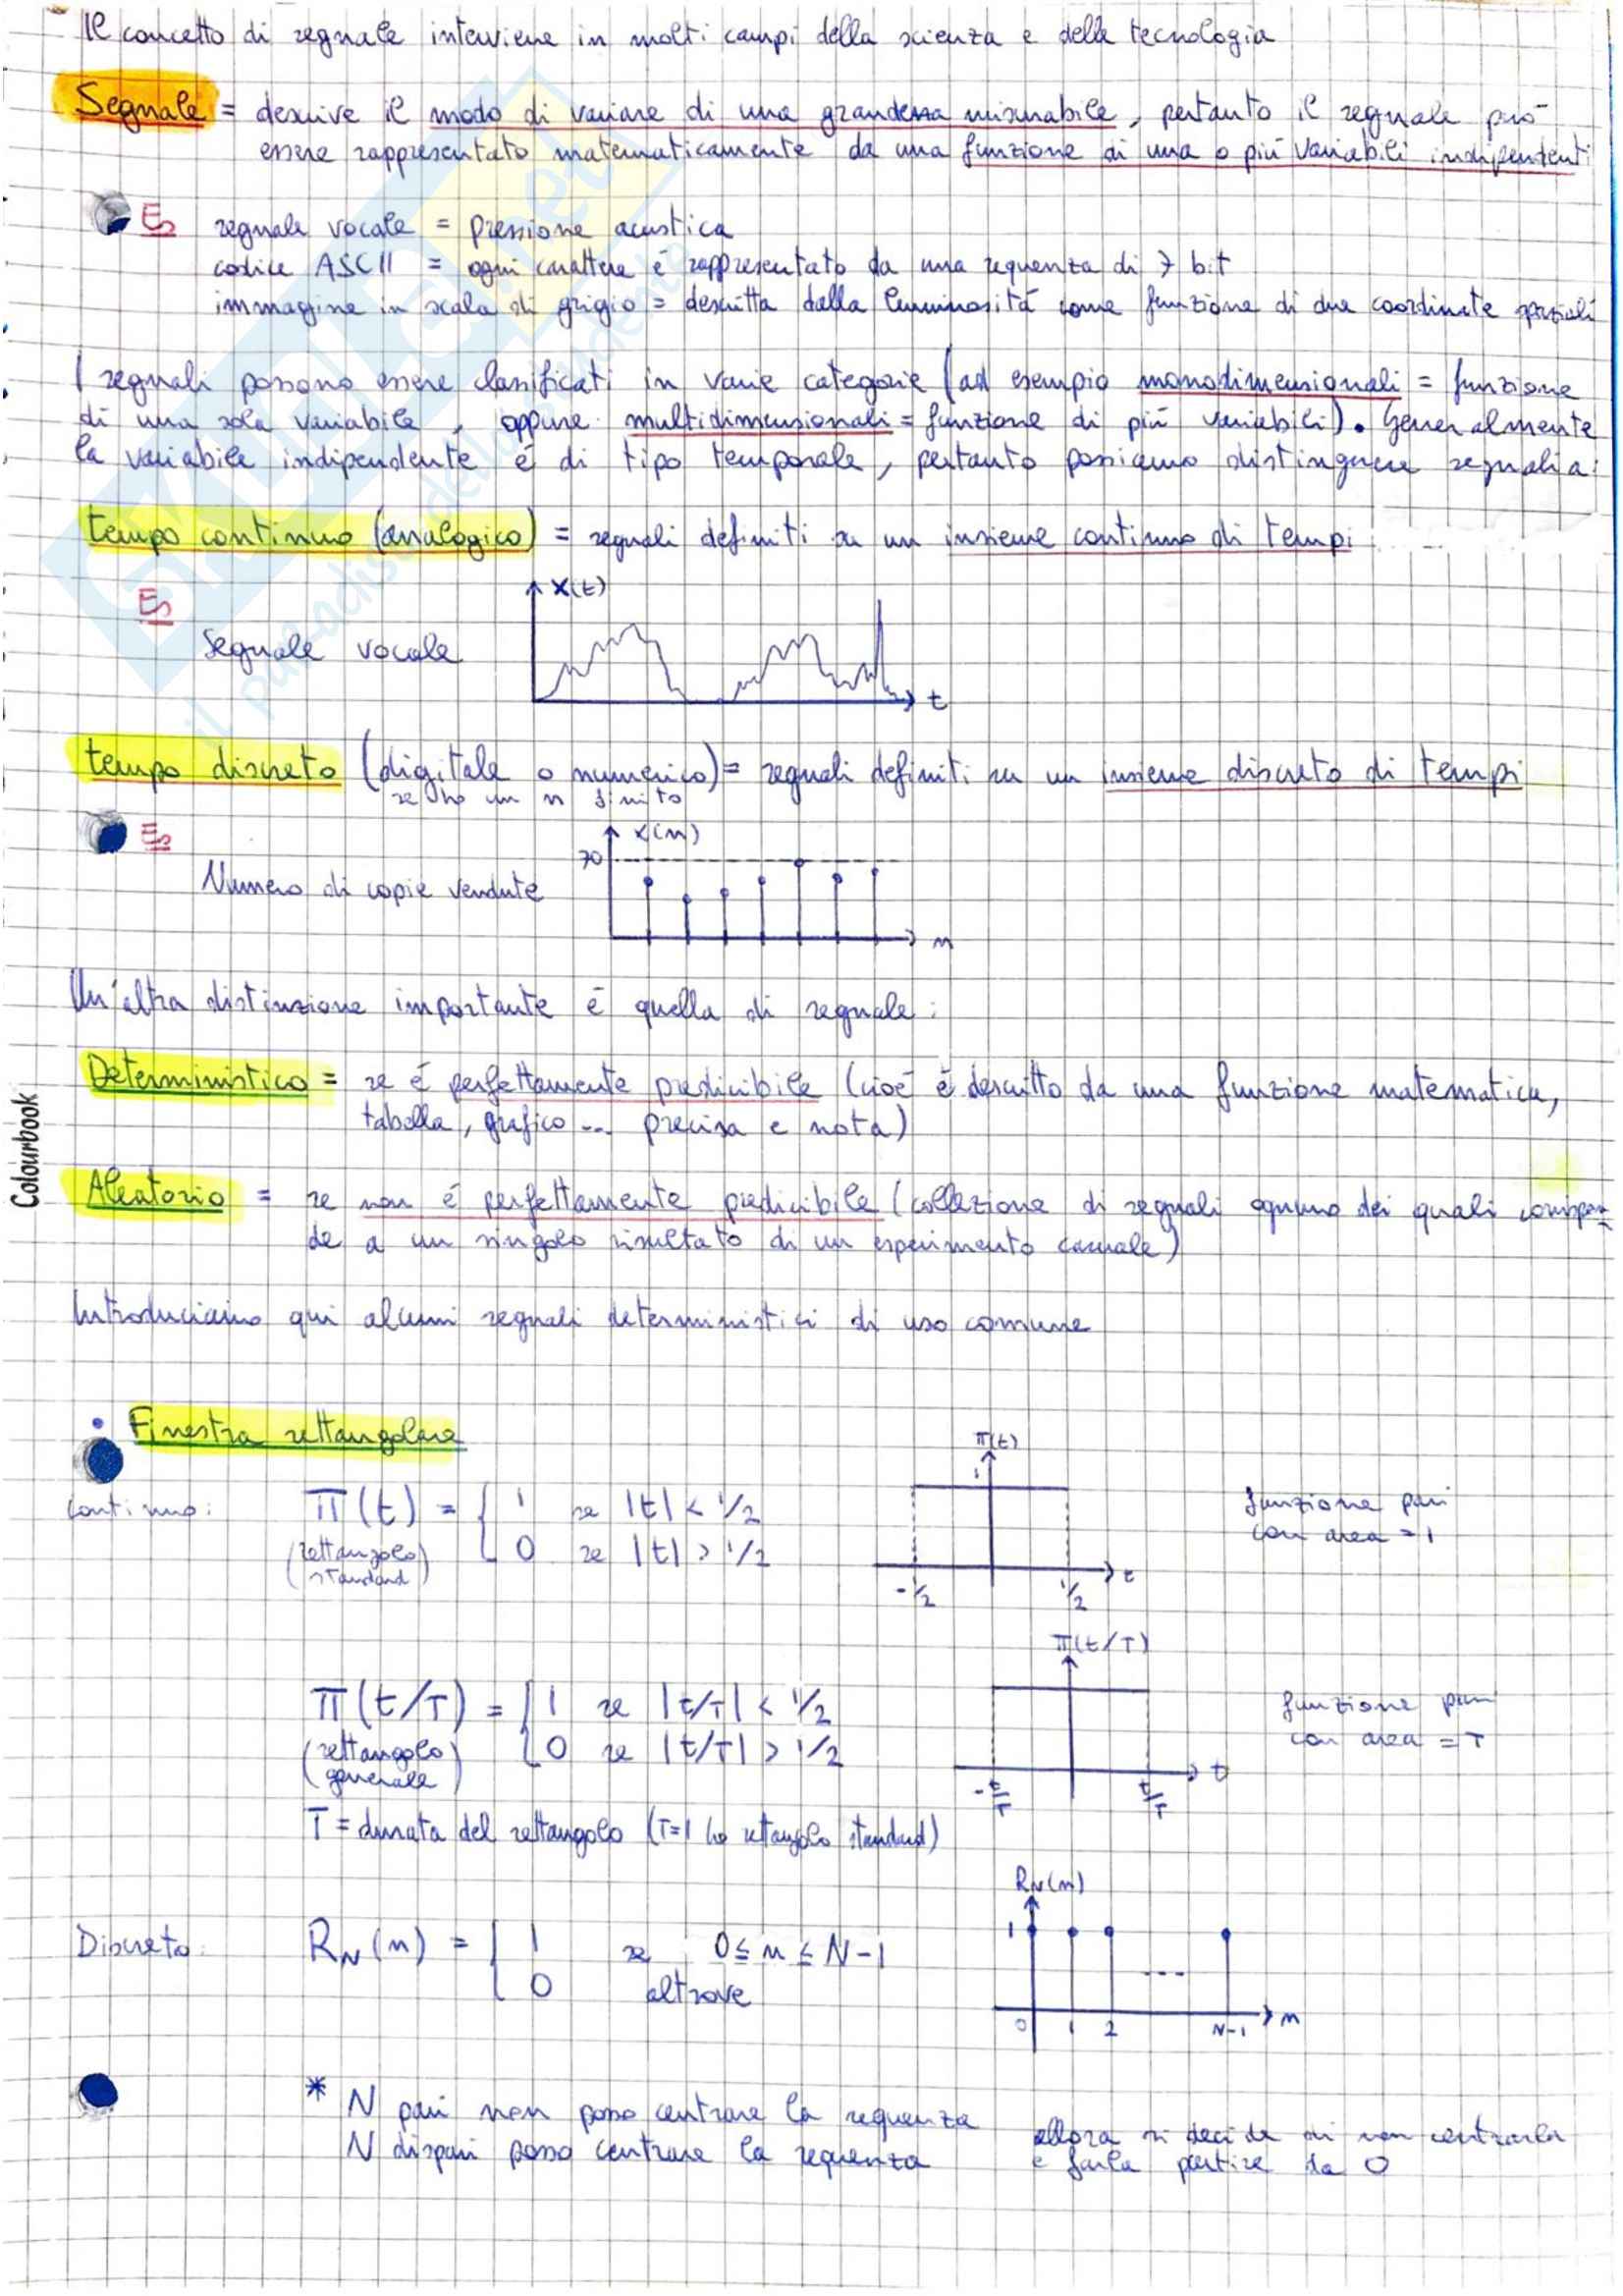 Il concetto di segnale interviene in molti campi della scienza e della tecnologia
Segnale = descrive il modo di variare di una grandezza misurabile, pertanto il segnale può
essere rappresentato matematicamente da una funzione di una o più variabili indipendenti
Es segnale vocale = pressione acustica
codice ASCII = ogni carattere è rappresentato da una sequenza di 7 bit
immagine in scala di grigio = descritta dalla luminosità come funzione di due coordinate spaziali
I segnali possono essere classificati in varie categorie (ad esempio monodimensionali = funzione
di una sola variabile, oppure multidimensionali = funzione di più variabili). Generalmente
la variabile indipendente è di tipo temporale, pertanto possiamo distinguere segnali a:
tempo continuo (analogico) = segnali definiti su un insieme continuo di tempi
Es
x(t)
Segnale vocale
t
tempo discreto (digitale o numerico) = segnali definiti su un insieme discreto di tempi
se ho un n finito
Es
x(n)
70
Numero di copie vendute
n
Un'altra distinzione importante è quella di segnale:
Deterministico = se è perfettamente predicibile (cioè è descritto da una funzione matematica,
tabella, grafico ... precisa e nota)
Aleatorio = se non è perfettamente predicibile (collezione di segnali ognuno dei quali corrispon-
de a un singolo risultato di un esperimento casuale)
Introduciamo qui alcuni segnali deterministici di uso comune
• Finestra rettangolare
π(t)
1
continuo: π(t) = { 1 se |t| < 1/2
0 se |t| > 1/2
(rettangolo standard)
-1/2 1/2 t
funzione pari
con area = 1
π(t/T)
π(t/T) = { 1 se |t/T| < 1/2
0 se |t/T| > 1/2
(rettangolo generale)
-t/T t/T t
funzione pari
con area = T
T = durata del rettangolo (T=1 ho rettangolo standard)
RN(n)
1
Discreto: RN(n) = { 1 se 0 ≤ n ≤ N-1
0 altrove
0 1 2 N-1 n
* N pari non posso centrare la sequenza
N dispari posso centrare la sequenza
allora si decide di non centrarla
e farla partire da 0
Colourbook